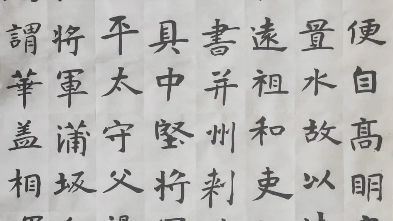 便自髙明
置水故以
遠祖和吏
書并州刺
具中堅将
平太守父
将軍蒲坂
謂華盖相